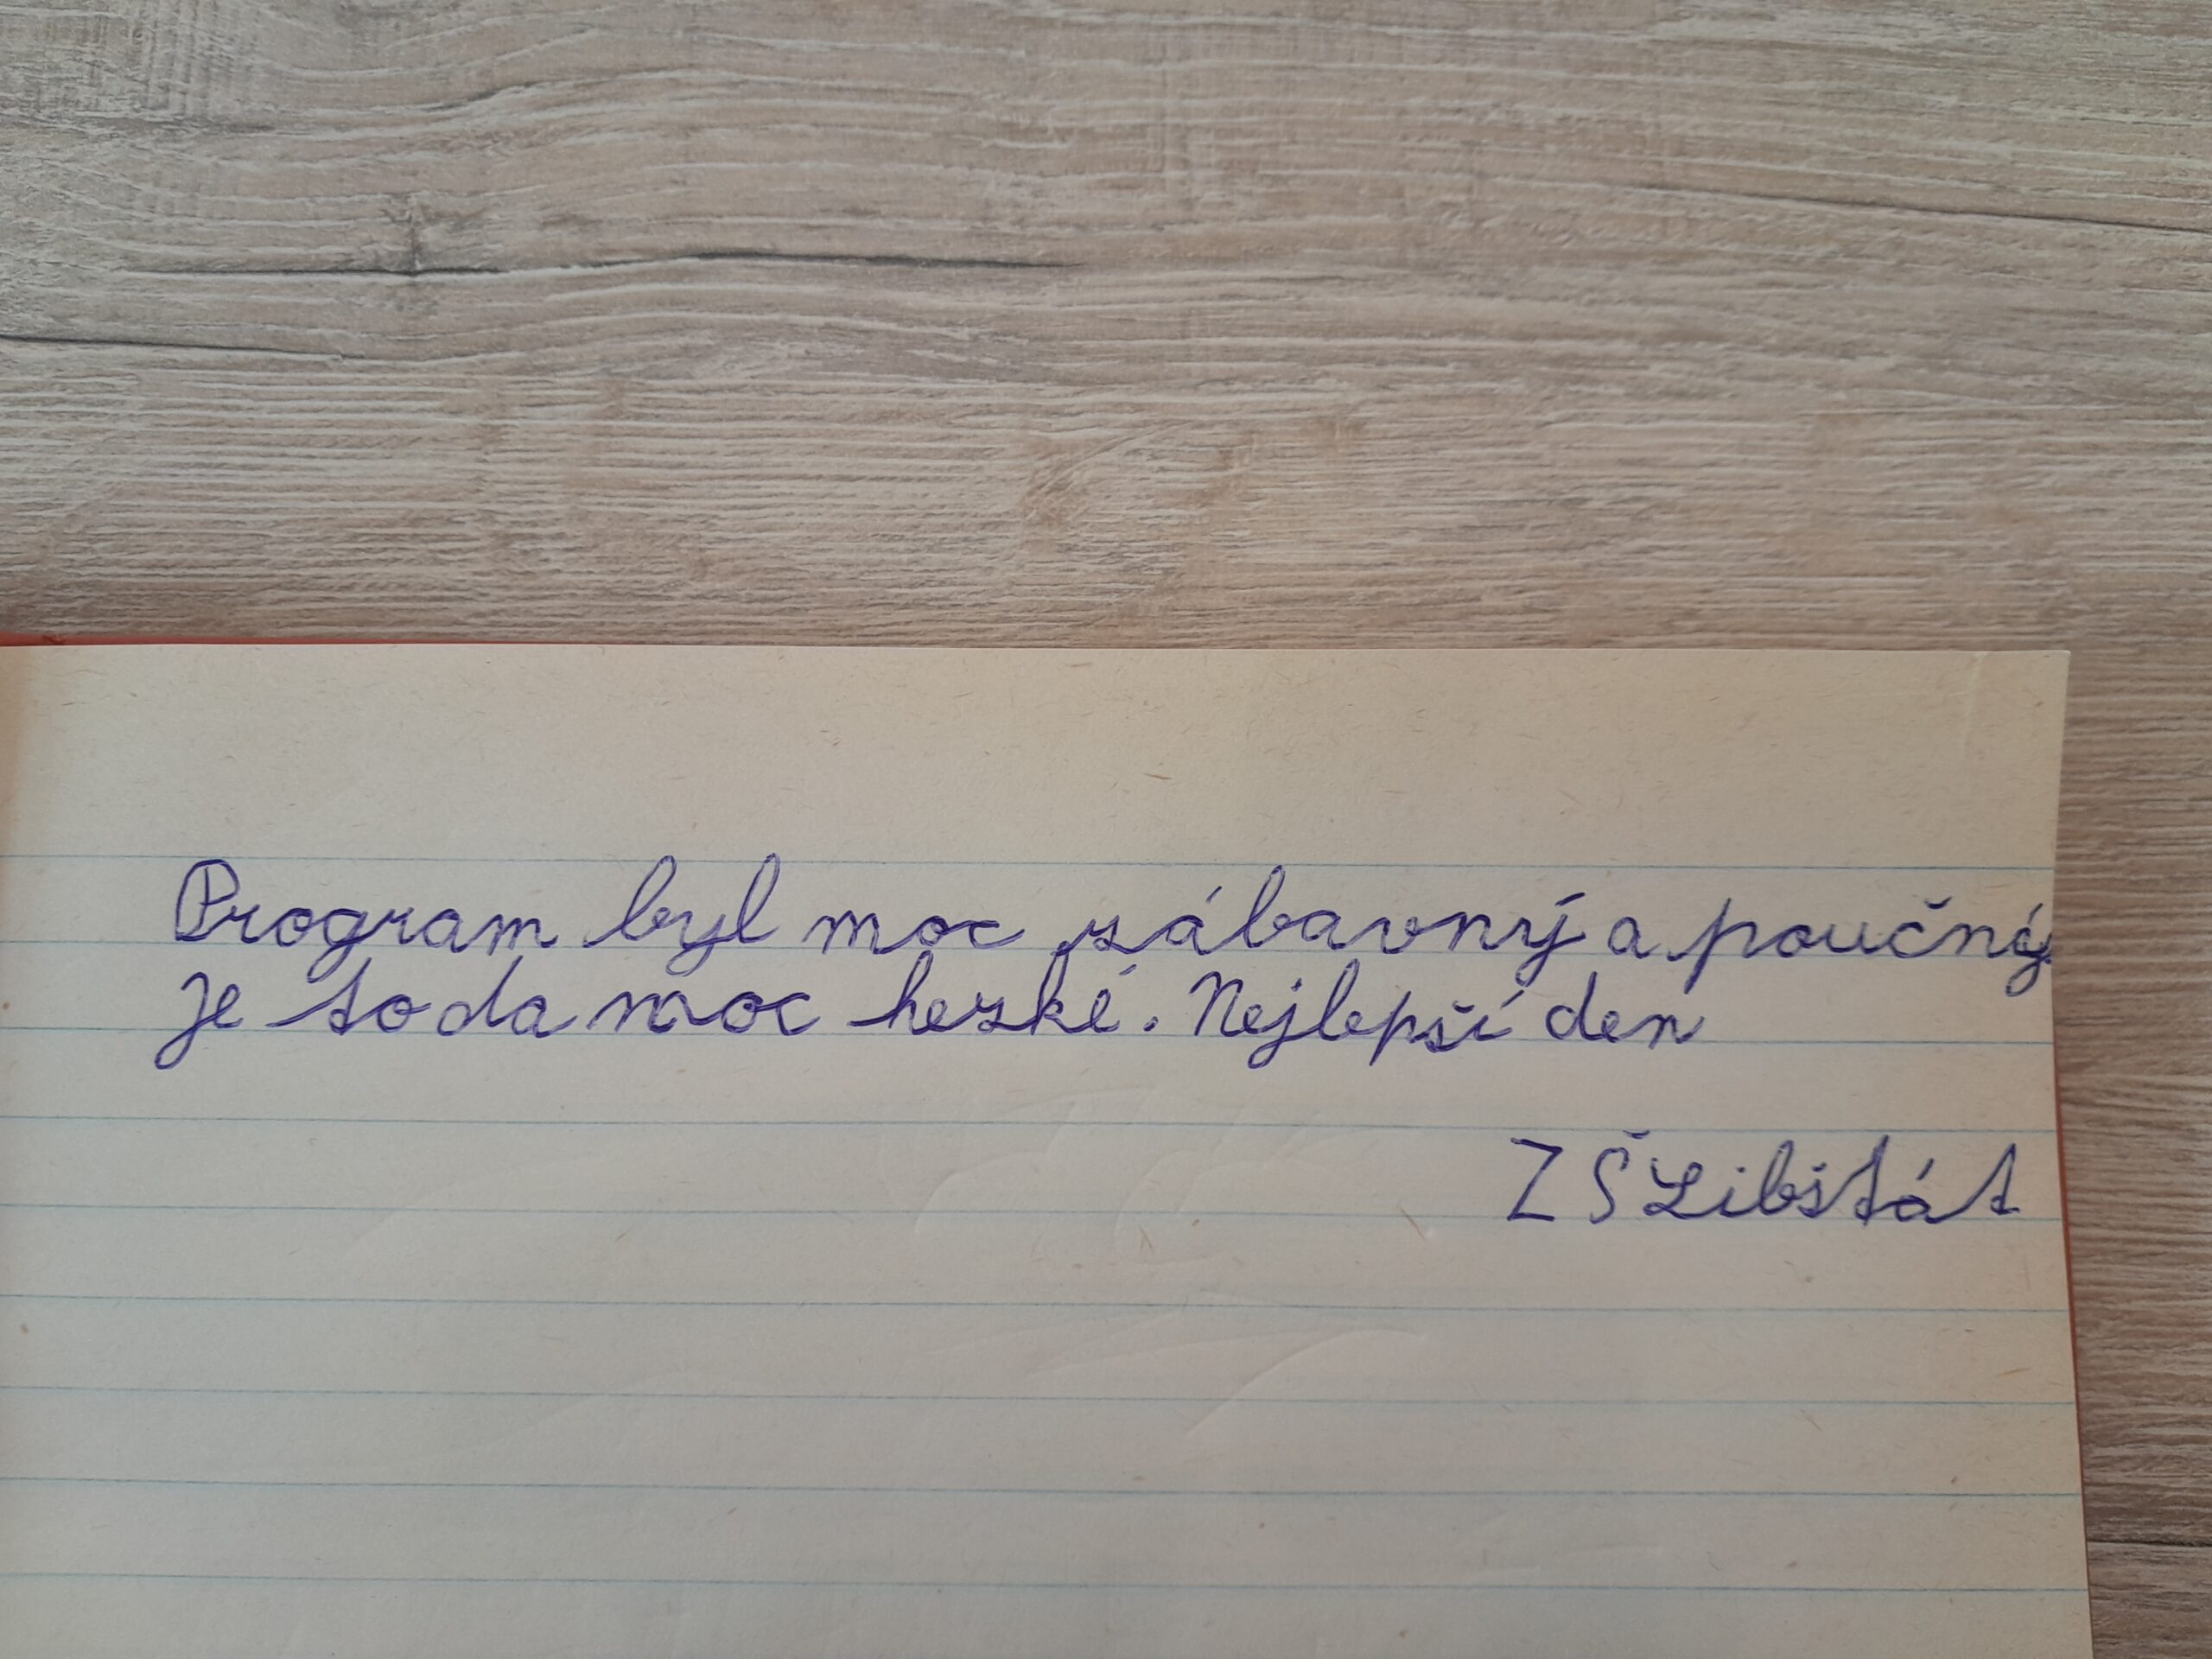 Program byl moc zábavný a poučný.
Je to da moc hezké. Nejlepší den
ZŠ Libštát